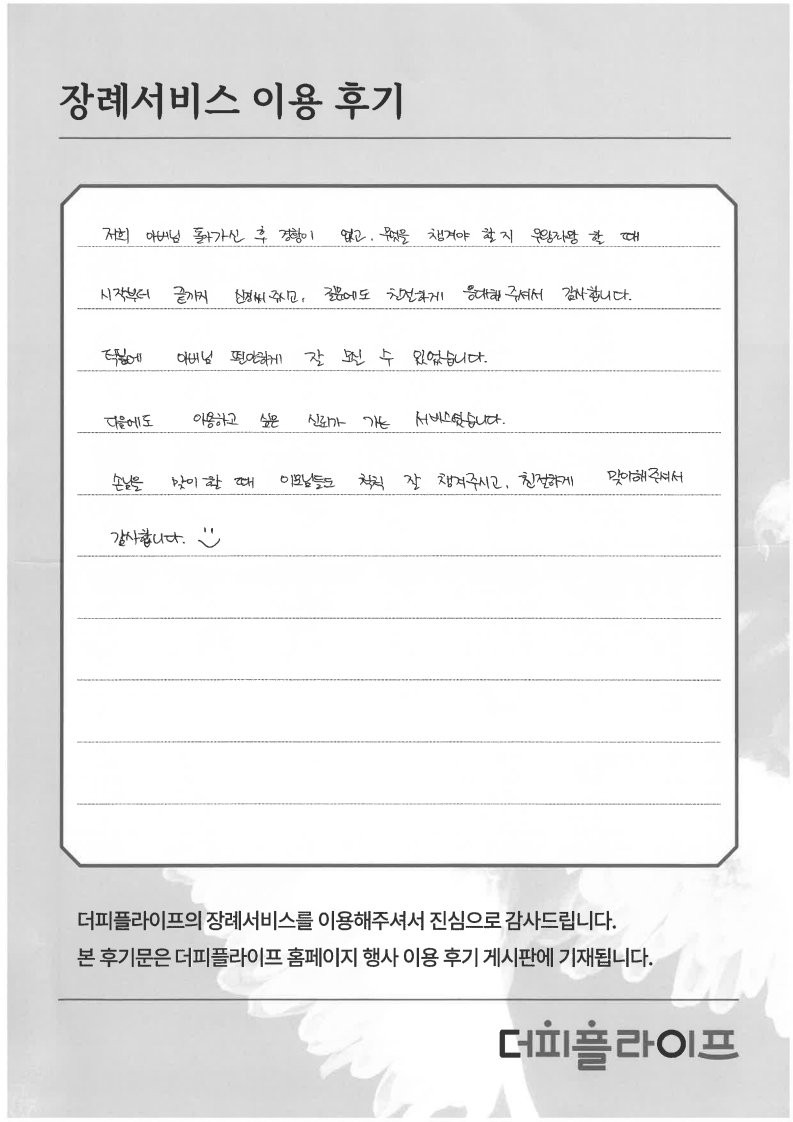 장례서비스 이용 후기
저희 아버님 돌아가신 후 경황이 없고, 무엇을 챙겨야 할 지 우왕좌왕 할 때
시작부터 끝까지 신경써주시고, 질문에도 친절하게 응대해 주셔서 감사합니다.
덕분에 아버님 편안하게 잘 모실 수 있었습니다.
다음에도 이용하고 싶은 신뢰가 가는 서비스였습니다.
손님을 맞이 할 때 이모님들도 척척 잘 챙겨주시고, 친절하게 맞이해주셔서
감사합니다.
더피플라이프의 장례서비스를 이용해주셔서 진심으로 감사드립니다.
본 후기문은 더피플라이프 홈페이지 행사 이용 후기 게시판에 기재됩니다.
더피플라이프